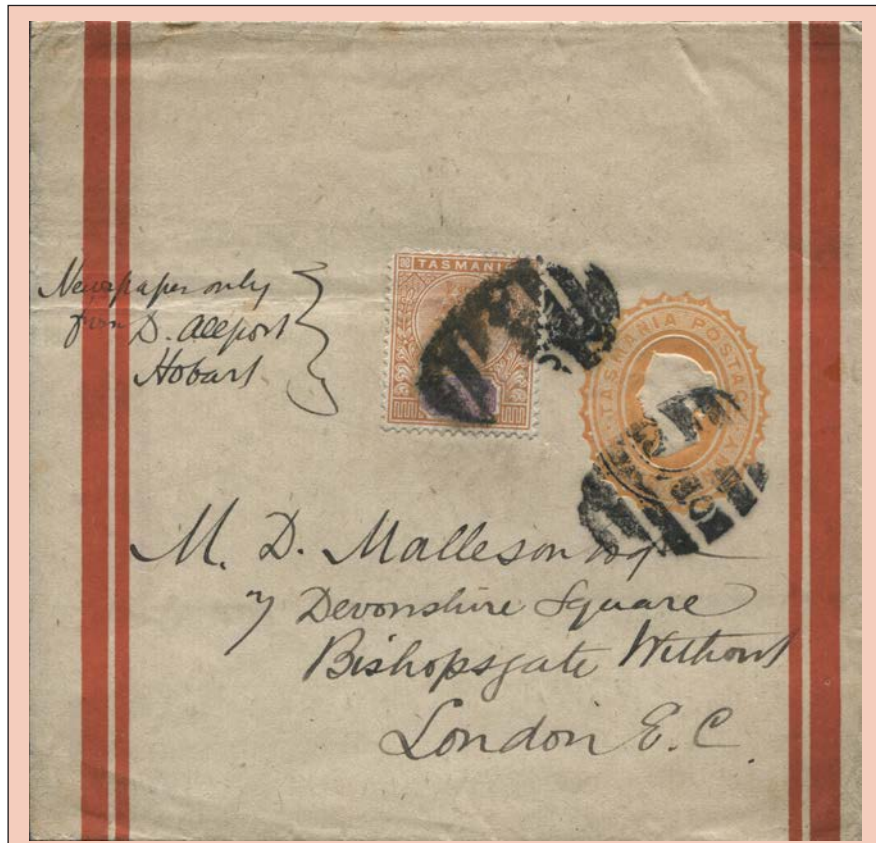 Newspaper only
from D. Allport
Hobart
TASMANIA
TASMANIA POSTAGE AND
M. D. Malleson Esqre
7 Devonshire Square
Bishopsgate Without
London E.C.